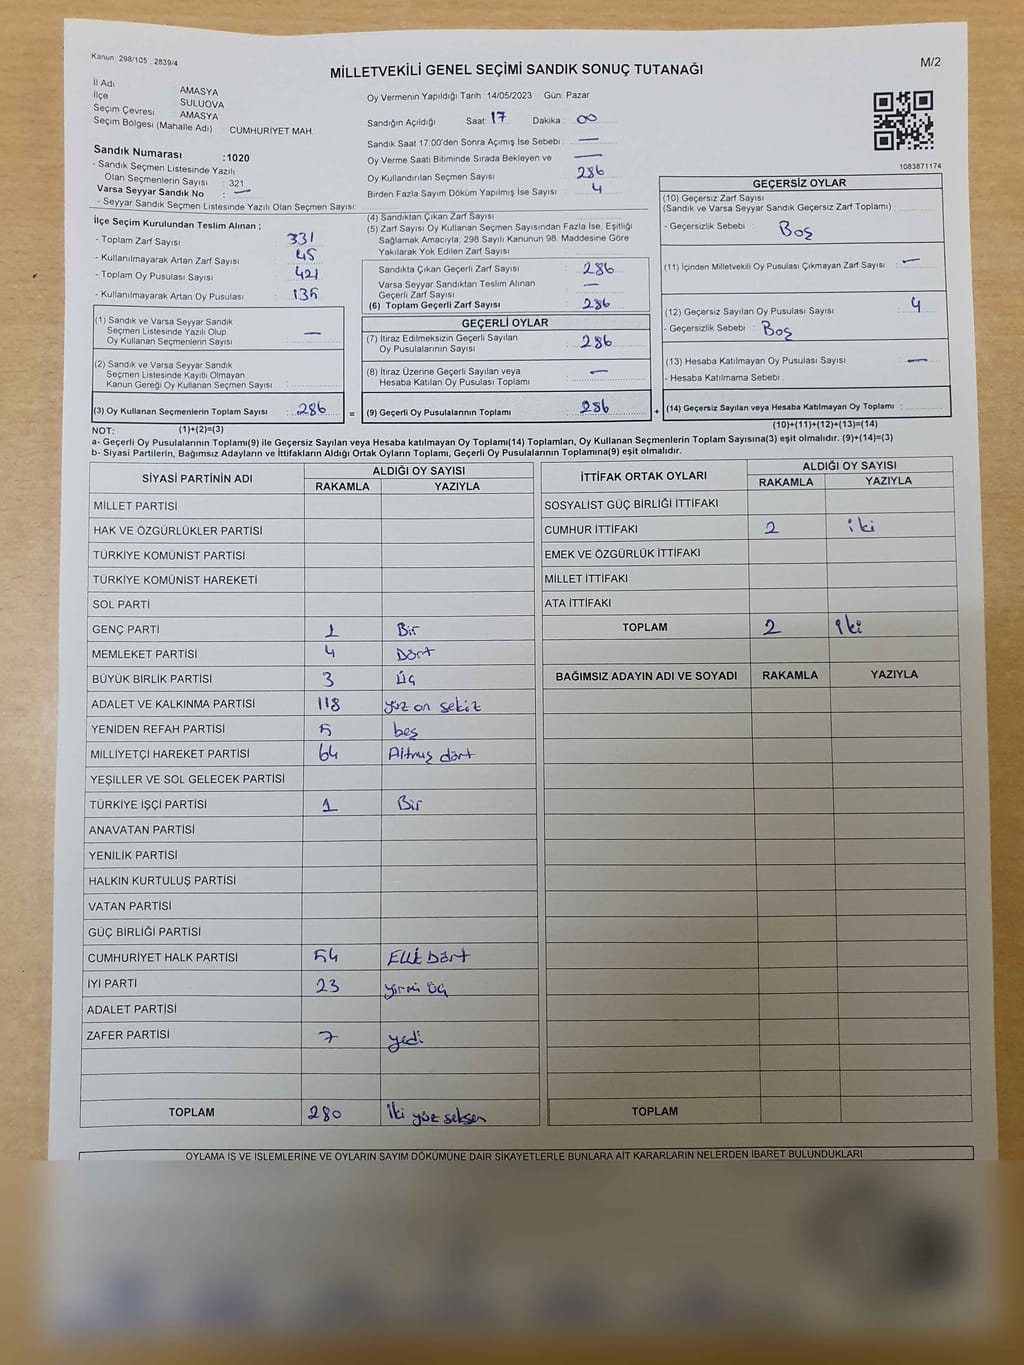 Kanun: 298/105 , 2839/4
MİLLETVEKİLİ GENEL SEÇİMİ SANDIK SONUÇ TUTANAĞI
M/2
İl Adı AMASYA
İlçe SULUOVA
Seçim Çevresi AMASYA
Seçim Bölgesi (Mahalle Adı) : CUMHURİYET MAH.
Sandık Numarası :1020
- Sandık Seçmen Listesinde Yazılı
Olan Seçmenlerin Sayısı : 321
Varsa Seyyar Sandık No : —
- Seyyar Sandık Seçmen Listesinde Yazılı Olan Seçmen Sayısı:
Oy Vermenin Yapıldığı Tarih :14/05/2023 Gün: Pazar
Sandığın Açıldığı Saat: 17 Dakika : 00
Sandık Saat 17:00'den Sonra Açımış İse Sebebi : —
Oy Verme Saati Bitiminde Sırada Bekleyen ve —
Oy Kullandırılan Seçmen Sayısı : 286
Birden Fazla Sayım Döküm Yapılmış İse Sayısı : 4
1083871174
İlçe Seçim Kurulundan Teslim Alınan ;
- Toplam Zarf Sayısı : 331
- Kullanılmayarak Artan Zarf Sayısı : 45
- Toplam Oy Pusulası Sayısı : 421
- Kullanılmayarak Artan Oy Pusulası : 135
(1) Sandık ve Varsa Seyyar Sandık
Seçmen Listesinde Yazılı Olup
Oy Kullanan Seçmenlerin Sayısı : —
(2) Sandık ve Varsa Seyyar Sandık
Seçmen Listesinde Kayıtlı Olmayan
Kanun Gereği Oy Kullanan Seçmen Sayısı :
(3) Oy Kullanan Seçmenlerin Toplam Sayısı : 286 =
(4) Sandıktan Çıkan Zarf Sayısı :
(5) Zarf Sayısı Oy Kullanan Seçmen Sayısından Fazla İse, Eşitliği
Sağlamak Amacıyla; 298 Sayılı Kanunun 98. Maddesine Göre
Yakılarak Yok Edilen Zarf Sayısı :
Sandıkta Çıkan Geçerli Zarf Sayısı : 286
Varsa Seyyar Sandıktan Teslim Alınan
Geçerli Zarf Sayısı : —
(6) Toplam Geçerli Zarf Sayısı : 286
GEÇERLİ OYLAR
(7) İtiraz Edilmeksizin Geçerli Sayılan
Oy Pusulalarının Sayısı : 286
(8) İtiraz Üzerine Geçerli Sayılan veya
Hesaba Katılan Oy Pusulası Toplamı : —
(9) Geçerli Oy Pusulalarının Toplamı : 286 +
GEÇERSİZ OYLAR
(10) Geçersiz Zarf Sayısı
(Sandık ve Varsa Seyyar Sandık Geçersiz Zarf Toplamı) :
- Geçersizlik Sebebi : Boş
(11) İçinden Milletvekili Oy Pusulası Çıkmayan Zarf Sayısı : —
(12) Geçersiz Sayılan Oy Pusulası Sayısı : 4
- Geçersizlik Sebebi : Boş
(13) Hesaba Katılmayan Oy Pusulası Sayısı : —
- Hesaba Katılmama Sebebi :
(14) Geçersiz Sayılan veya Hesaba Katılmayan Oy Toplamı :
NOT: (1)+(2)=(3)
(10)+(11)+(12)+(13)=(14)
a- Geçerli Oy Pusulalarının Toplamı(9) ile Geçersiz Sayılan veya Hesaba katılmayan Oy Toplamı(14) Toplamları, Oy Kullanan Seçmenlerin Toplam Sayısına(3) eşit olmalıdır. (9)+(14)=(3)
b- Siyasi Partilerin, Bağımsız Adayların ve İttifakların Aldığı Ortak Oyların Toplamı, Geçerli Oy Pusulalarının Toplamına(9) eşit olmalıdır.
SİYASİ PARTİNİN ADI ALDIĞI OY SAYISI
RAKAMLA YAZIYLA
MİLLET PARTİSİ
HAK VE ÖZGÜRLÜKLER PARTİSİ
TÜRKİYE KOMÜNİST PARTİSİ
TÜRKİYE KOMÜNİST HAREKETİ
SOL PARTİ
GENÇ PARTİ 1 Bir
MEMLEKET PARTİSİ 4 Dört
BÜYÜK BİRLİK PARTİSİ 3 Üç
ADALET VE KALKINMA PARTİSİ 118 yüz on sekiz
YENİDEN REFAH PARTİSİ 5 beş
MİLLİYETÇİ HAREKET PARTİSİ 64 Altmış dört
YEŞİLLER VE SOL GELECEK PARTİSİ
TÜRKİYE İŞÇİ PARTİSİ 1 Bir
ANAVATAN PARTİSİ
YENİLİK PARTİSİ
HALKIN KURTULUŞ PARTİSİ
VATAN PARTİSİ
GÜÇ BİRLİĞİ PARTİSİ
CUMHURİYET HALK PARTİSİ 54 Elli Dört
İYİ PARTİ 23 yirmi üç
ADALET PARTİSİ
ZAFER PARTİSİ 7 yedi
TOPLAM 280 İki yüz seksen
İTTİFAK ORTAK OYLARI ALDIĞI OY SAYISI
RAKAMLA YAZIYLA
SOSYALİST GÜÇ BİRLİĞİ İTTİFAKI
CUMHUR İTTİFAKI 2 iki
EMEK VE ÖZGÜRLÜK İTTİFAKI
MİLLET İTTİFAKI
ATA İTTİFAKI
TOPLAM 2 iki
BAĞIMSIZ ADAYIN ADI VE SOYADI RAKAMLA YAZIYLA
TOPLAM
OYLAMA İŞ VE İŞLEMLERİNE VE OYLARIN SAYIM DÖKÜMÜNE DAİR ŞİKAYETLERLE BUNLARA AİT KARARLARIN NELERDEN İBARET BULUNDUKLARI